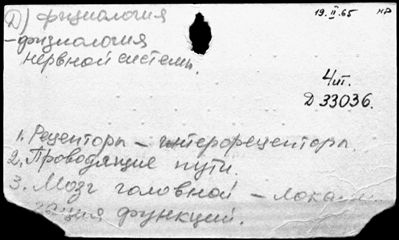 Д) физиология
19.II.65 нр
- физиология
нервной системы.
4 ит.
D 33036.
1. Рецепторы – интерорецепторы.
2. Проводящие пути.
3. Мозг головной – локали
зация функций.